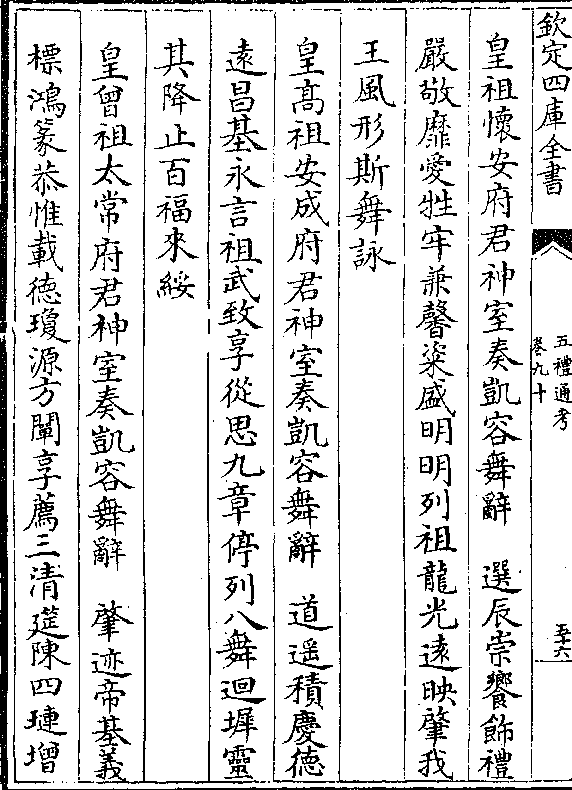 欽定四庫全書
五禮通考
卷九十
皇祖懷安府君神室奏凱容舞辭　選辰崇饗飾禮
嚴敬靡愛牲牢兼馨粢盛明明列祖龍光遠映肇我
王風形斯舞詠
皇高祖安成府君神室奏凱容舞辭　道遥積慶德
遠昌基永言祖武致享從思九章停列八舞迴墀靈
其降止百福來綏
皇曾祖太常府君神室奏凱容舞辭　肇迹帝基義
標鴻篆恭惟載德瓊源方闡享薦三清筵陳四璉增